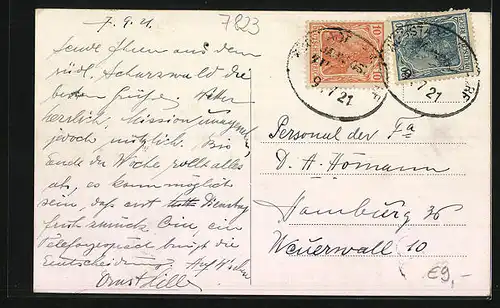 7.9.21.
7823
Sende Ihnen aus dem
südl. Scharzwald die
besten Grüße. Wetter
herrlich.
jedoch nützlich. Bis
Ende der Woche rollt alles
ab, es kann möglich
sein, daß erst Dienstag
früh zurück bin, ein
Telefongespräch bringt die
Entscheidung. Auf Wieder
Ernst Hille
10 10
9 7 21
7 21
Personal der Fa
D. H. Homann
Hamburg 36
Neuerwall 10
€9,-